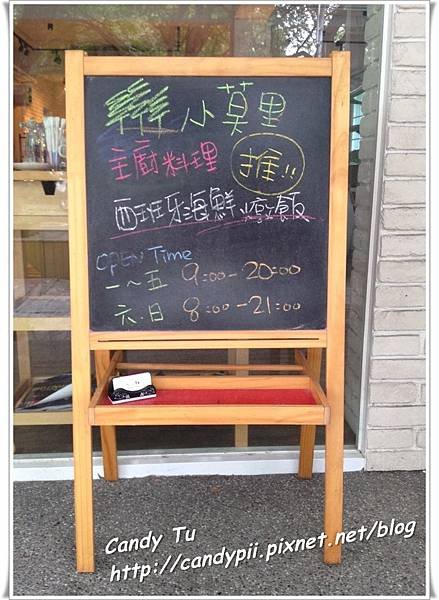 小莫里
主廚料理 推!!
西班牙海鮮燉飯
OPEN Time
一～五 9:00-20:00
六.日 8:00-21:00
Candy Tu
http://candypii.pixnet.net/blog